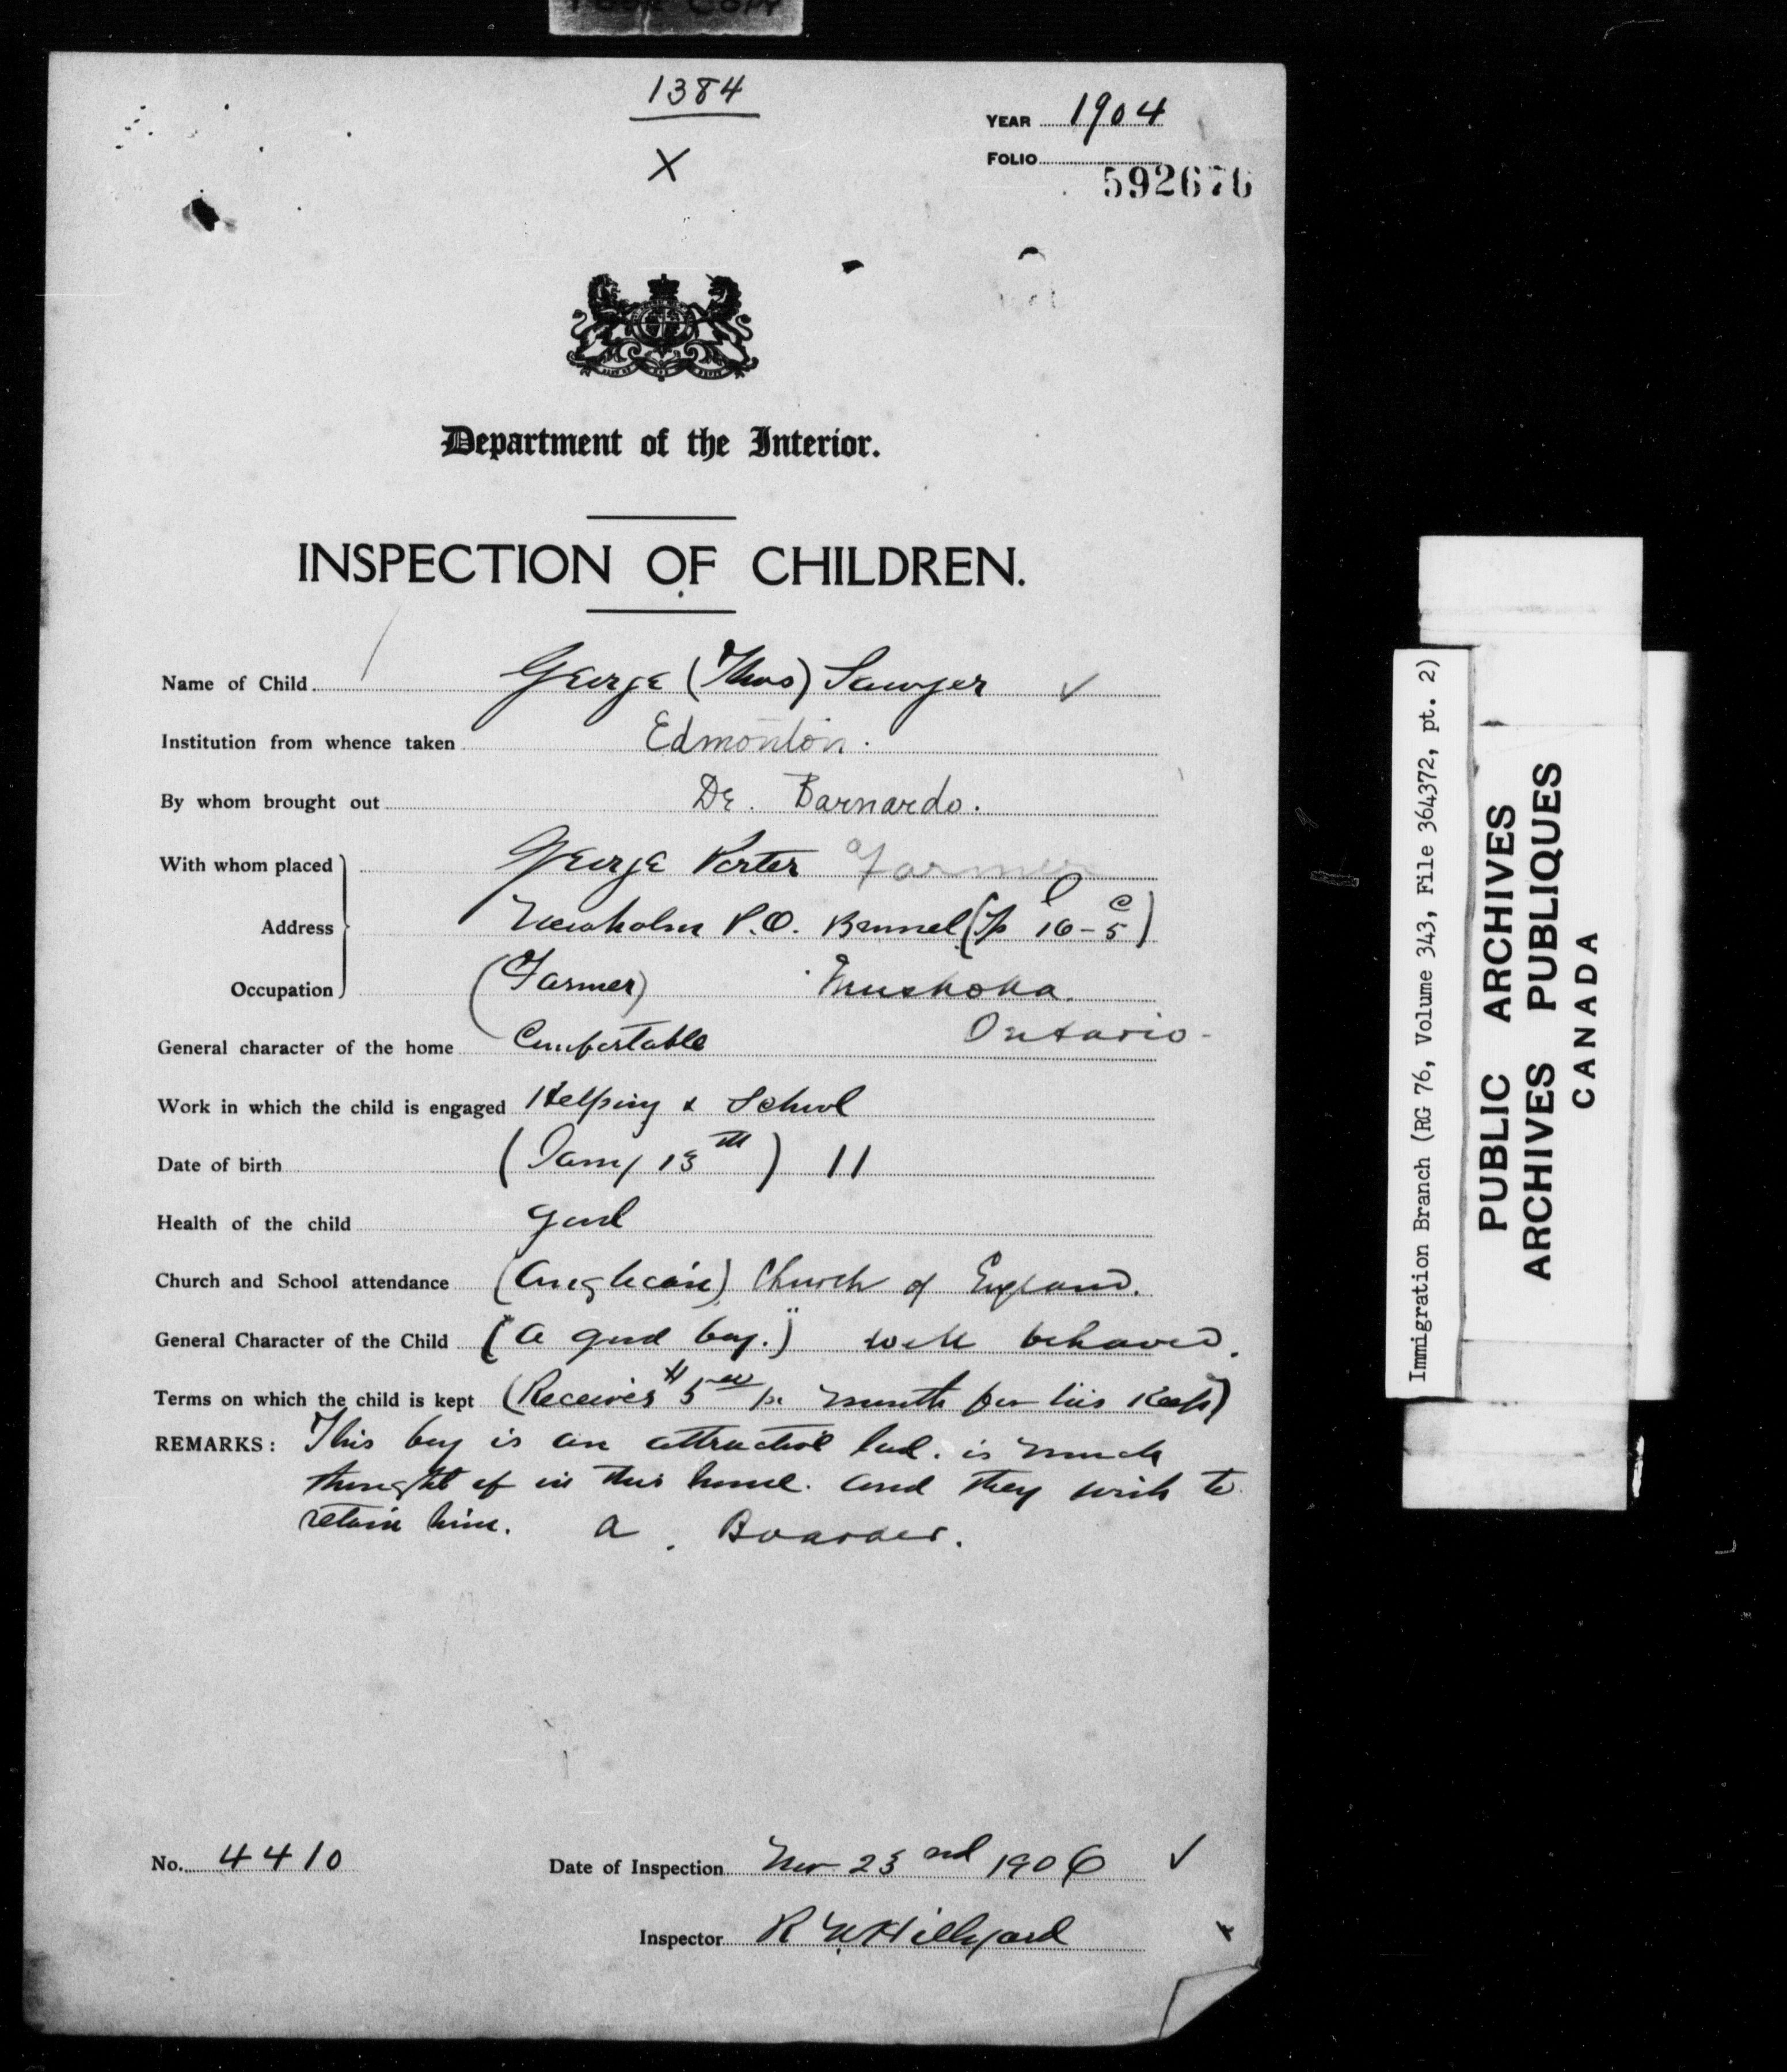 POOR COPY
1384
X
YEAR 1904
FOLIO
592676
Department of the Interior.
INSPECTION OF CHILDREN.
Name of Child George (Thos) Sawyer ✓
Institution from whence taken Edmonton.
By whom brought out Dr. Barnardo.
With whom placed George Porter Farmer
Address Newholm P.O. Brunel (Lp 16 - 5 C)
Occupation (Farmer) Muskoka.
Ontario -
General character of the home Comfortable
Work in which the child is engaged Helping & School
Date of birth (Jany 13th) 11
Health of the child good
Church and School attendance (Anglican) Church of England.
General Character of the Child ("A good boy.") well behaved.
Terms on which the child is kept (Receives $5 00 pr month for his Keep)
REMARKS: This boy is an attractive lad. is much
thought of in this home. and they wish to
retain him. a. Boarder.
No. 4410
Date of Inspection Nov 23nd 1906 ✓
Inspector R W Hillyard
Immigration Branch (RG 76, Volume 343, File 364372, pt. 2)
PUBLIC ARCHIVES
ARCHIVES PUBLIQUES
CANADA